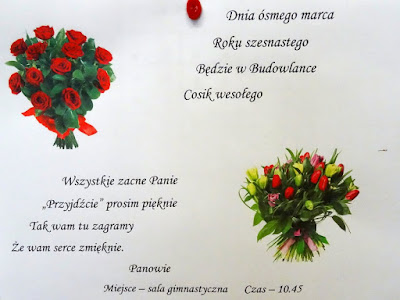 Dnia ósmego marca
Roku szesnastego
Będzie w Budowlance
Cosik wesołego
Wszystkie zacne Panie
„Przyjdźcie” prosim pięknie
Tak wam tu zagramy
Że wam serce zmięknie.
Panowie
Miejsce – sala gimnastyczna Czas – 10.45